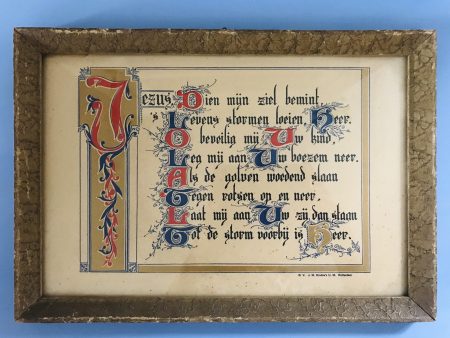 Jezus, Dien mijn ziel bemint,
's Levens stormen loeien, Heer.
O beveilig mij Uw kind,
Leg mij aan Uw boezem neer.
Als de golven woedend slaan
Tegen rotsen op en neer,
Laat mij aan Uw zij dan staan
Tot de storm voorbij is Heer.
U. M. Rotterdam